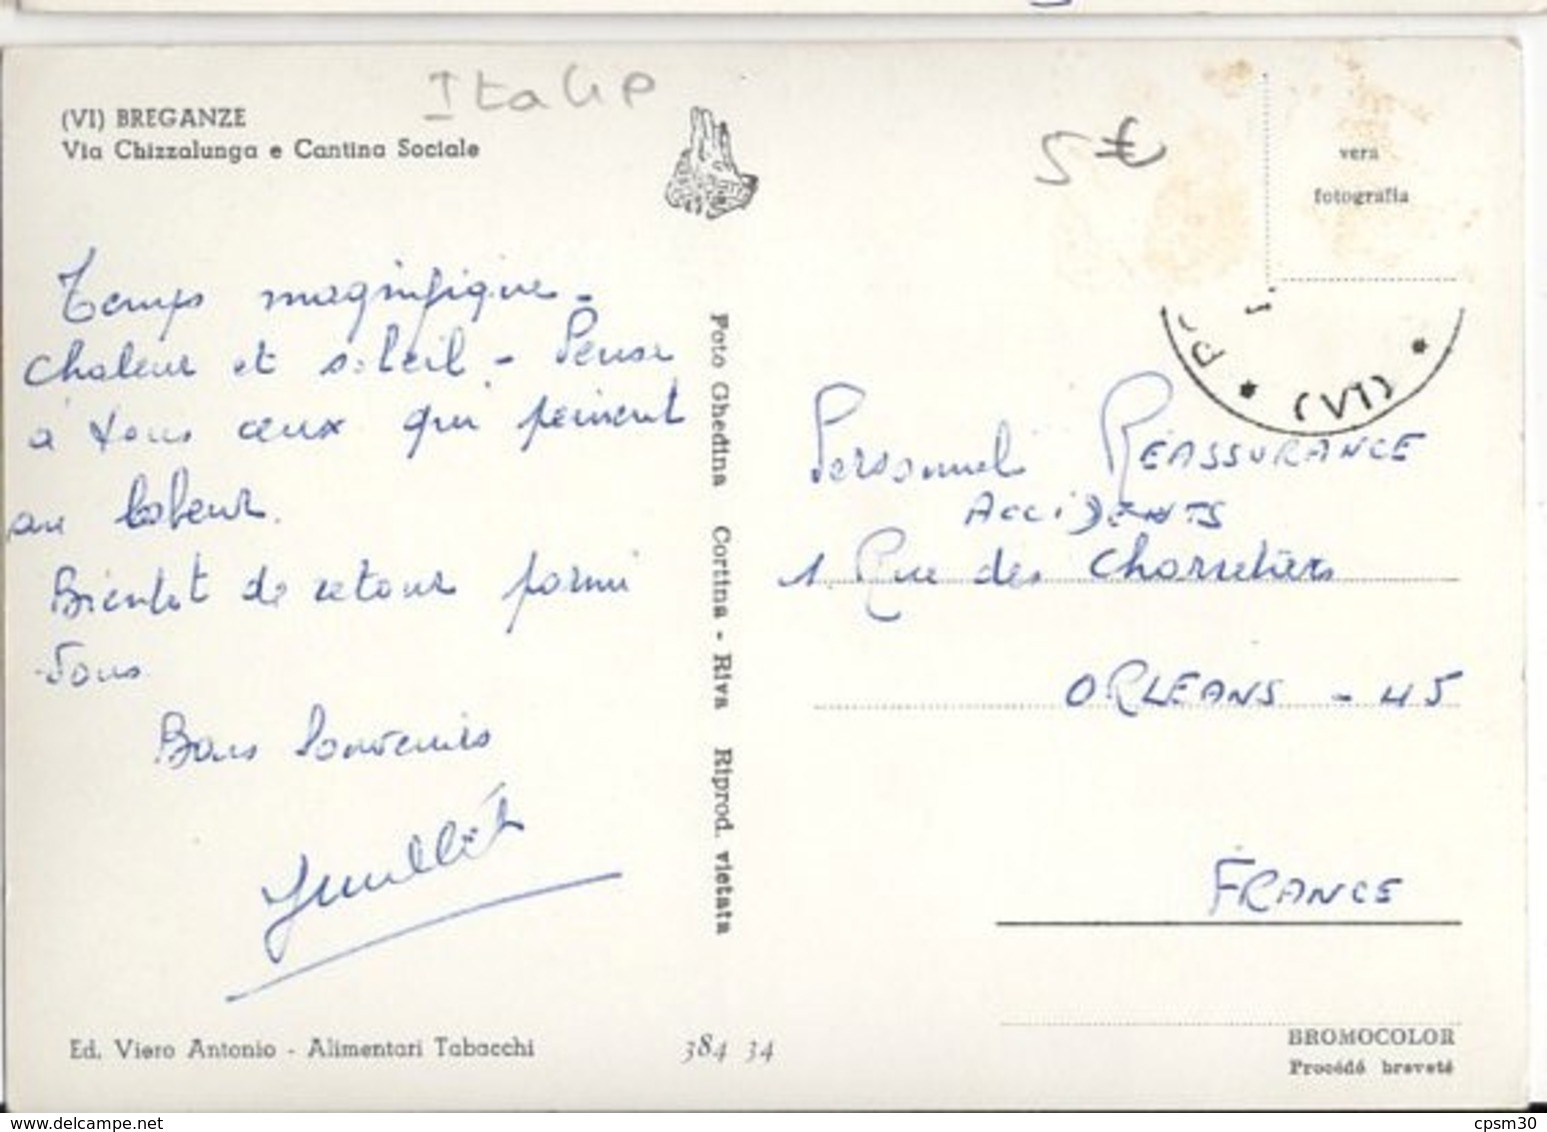 Italie
(VI) BREGANZE
Via Chizzalunga e Cantina Sociale
5 €
vera
fotografia
Temps magnifique -
Chaleur et soleil - Pense
à tous ceux qui peinent
au labeur.
Bientot de retour parmi
vous
Bons Souvenirs
Foto Ghedina Cortina - Riva Riprod. vietata
(VI)
Personnel REASSURANCE
ACCIDENTS
1. Rue des Charretiers
ORLEANS - 45
FRANCE
Ed. Viero Antonio - Alimentari Tabacchi
384 34
BROMOCOLOR
Procédé breveté
www.delcampe.net
cpsm30